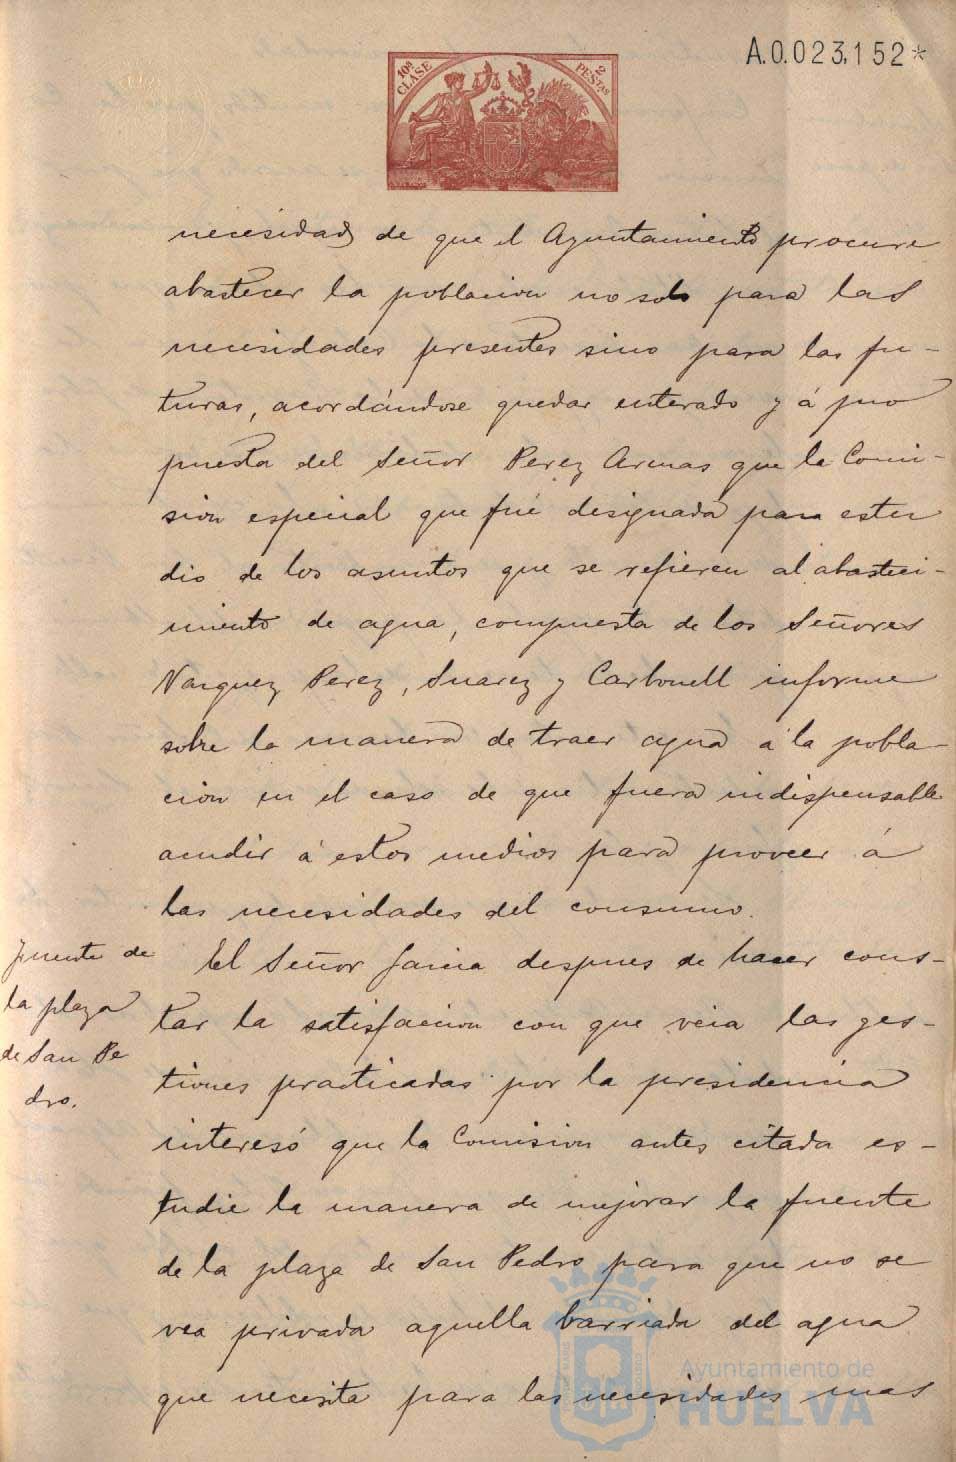 A.0.023,152*
10ª CLASE
2 PESTAS
necesidad de que el Ayuntamiento procure
abastecer la poblacion no solo para las
necesidades presentes sino para las fu-
turas, acordándose quedar enterado y á pro
puesta del Señor Perez Armas que la Comi-
sion especial que fué designada para estu
dio de los asuntos que se refieren al abasteci-
miento de agua, compuesta de los Señores
Vazquez Perez, Suarez y Carbonell informe
sobre la manera de traer agua á la pobla-
cion en el caso de que fuera indispensable
acudir á estos medios para proveer á
las necesidades del consumo.
Fuente de
la plaza
de San Pe
dro.
El Señor Garcia despues de hacer cons-
tar la satisfaccion con que veia las ges-
tiones practicadas por la presidencia
interesó que la Comision antes citada es-
tudie la manera de mejorar la fuente
de la plaza de San Pedro para que no se
vea privada aquella barriada del agua
que necesita para las necesidades mas
Ayuntamiento de
HUELVA